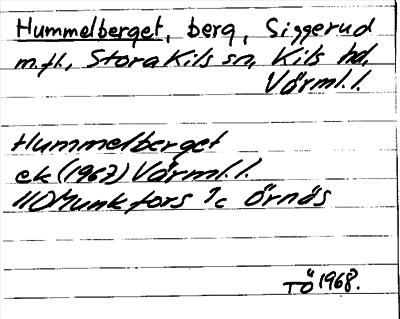 Hummelberget, berg, Siggerud
m.fl., Stora Kils sn, Kils hd,
Värml.l.
Hummelberget
ek (1967) Värml.l.
11D Munkfors 7c Örnäs
TÖ 1968.